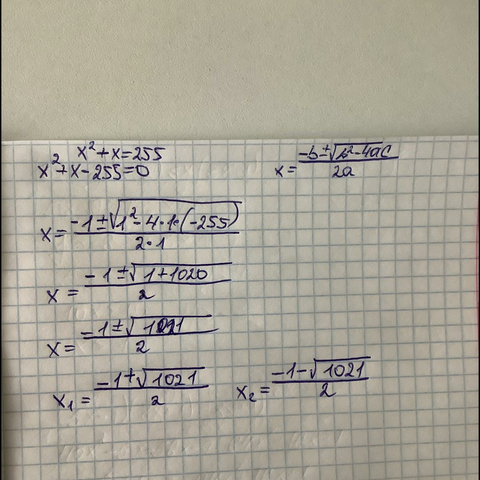 x² + x = 255
x² + x - 255 = 0
x = (-b ± √(b² - 4ac)) / 2a
x = (-1 ± √(1² - 4 · 1 · (-255))) / 2 · 1
x = (-1 ± √(1 + 1020)) / 2
x = (-1 ± √1021) / 2
x₁ = (-1 + √1021) / 2
x₂ = (-1 - √1021) / 2